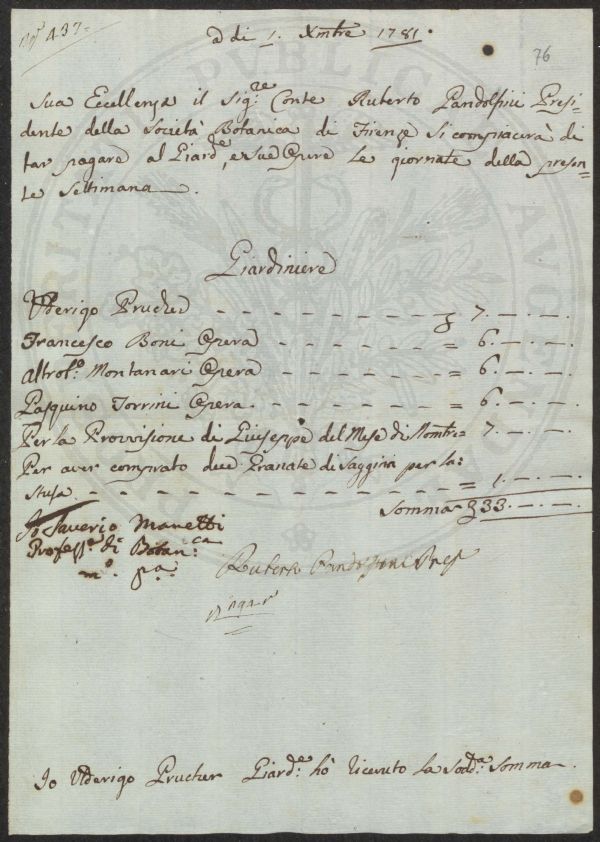 N.° 437.
76
a di 1. Xmbre 1781.
Sua Eccellenza il Sig.re Conte Ruberto Pandolfini Presi=
dente della Società Botanica di Firenze si compiacerà di
far pagare al Giard.e, e sue Opere le giornate della presen=
te Settimana.
Giardiniere
Ulderigo Prucher - - - - - - - - - - 7. — . — .
Francesco Boni Opera - - - - - - - = 6. — . — .
Altro f.° Montanari Opera - - - - - - = 6. — . — .
Pasquino Torrini Opera - - - - - - - = 6. — . — .
Per la Provvisione di Giuseppe del Mese di Nombre = 7. — . — .
Per aver comprato due Granate di Saggina per la
stufa - - - - - - - - - - - - - = 1. — . — .
Somma 33. — . — .
Io Saverio Manetti
Profess.e di Botan.ca
m.° p.a
Ruberto Pandolfini Pres.
Io Ulderigo Prucher Giard.e hò ricevuto la sod.a Somma.
PUBLIC